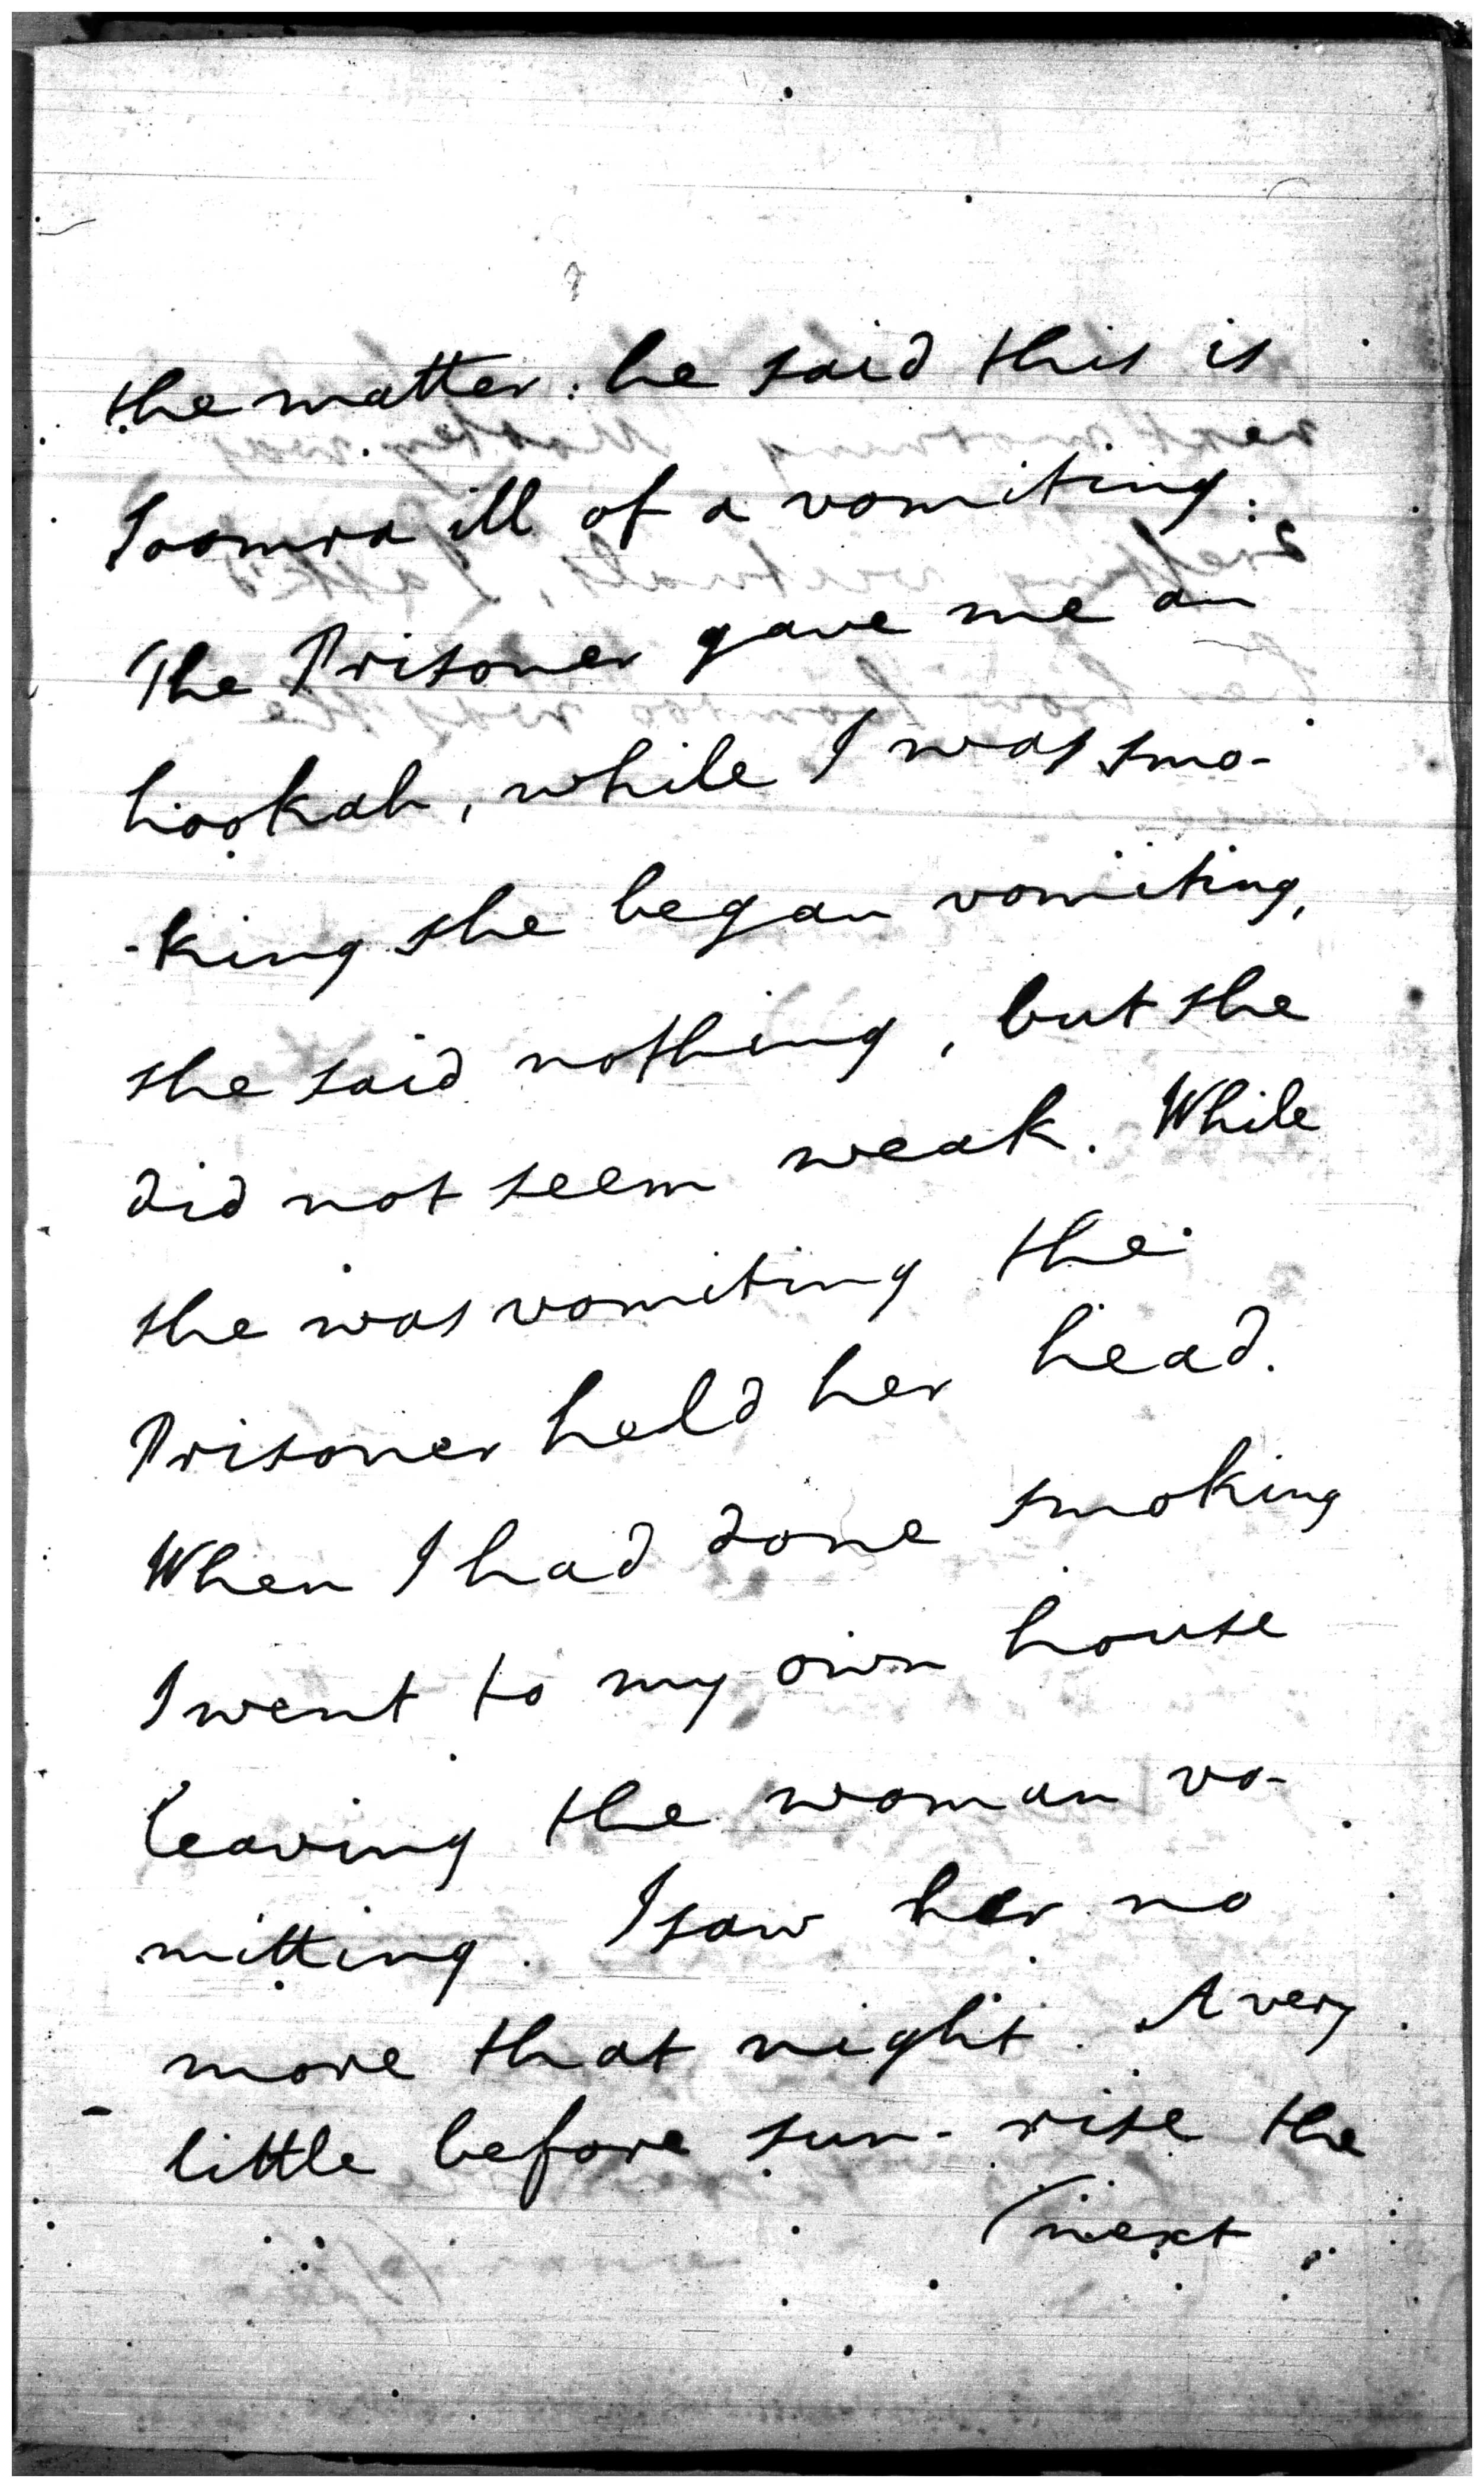 the matter: he said this is
Joomra ill of a vomiting.
The Prisoner gave me an
hookah, while I was smo-
-king she began vomiting,
she said nothing, but she
did not seem weak. While
she was vomiting the
Prisoner held her head.
When I had done smoking
I went to my own house
leaving the woman vo-
mitting. I saw her no
more that night. A very
little before sun-rise the
(next